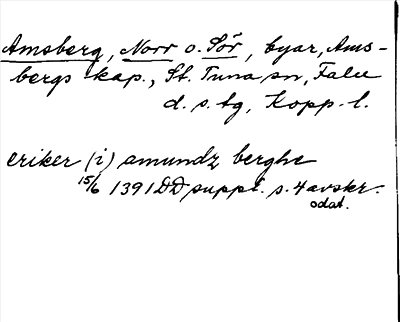 Amsberg, Norr o. Sör, byar, Ams-
bergs kap., St. Tuna sn, Falu
d. s. tg, Kopp. l.
eriker (i) amundz berghe
15/6 1391 DD suppl. s. 4 avskr.
odat.